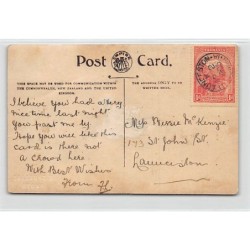 Post Card.
THIS SPACE MAY BE USED FOR COMMUNICATION WITHIN
THE ADDRESS ONLY TO BE
WRITTEN HERE.
I believe you had a very
nice time last night
you past me by
I hope you will like this
card is there not
a crowd here.
With Best Wishes
from
Miss Bessie McKenzie
St Johns St.
Launceston.